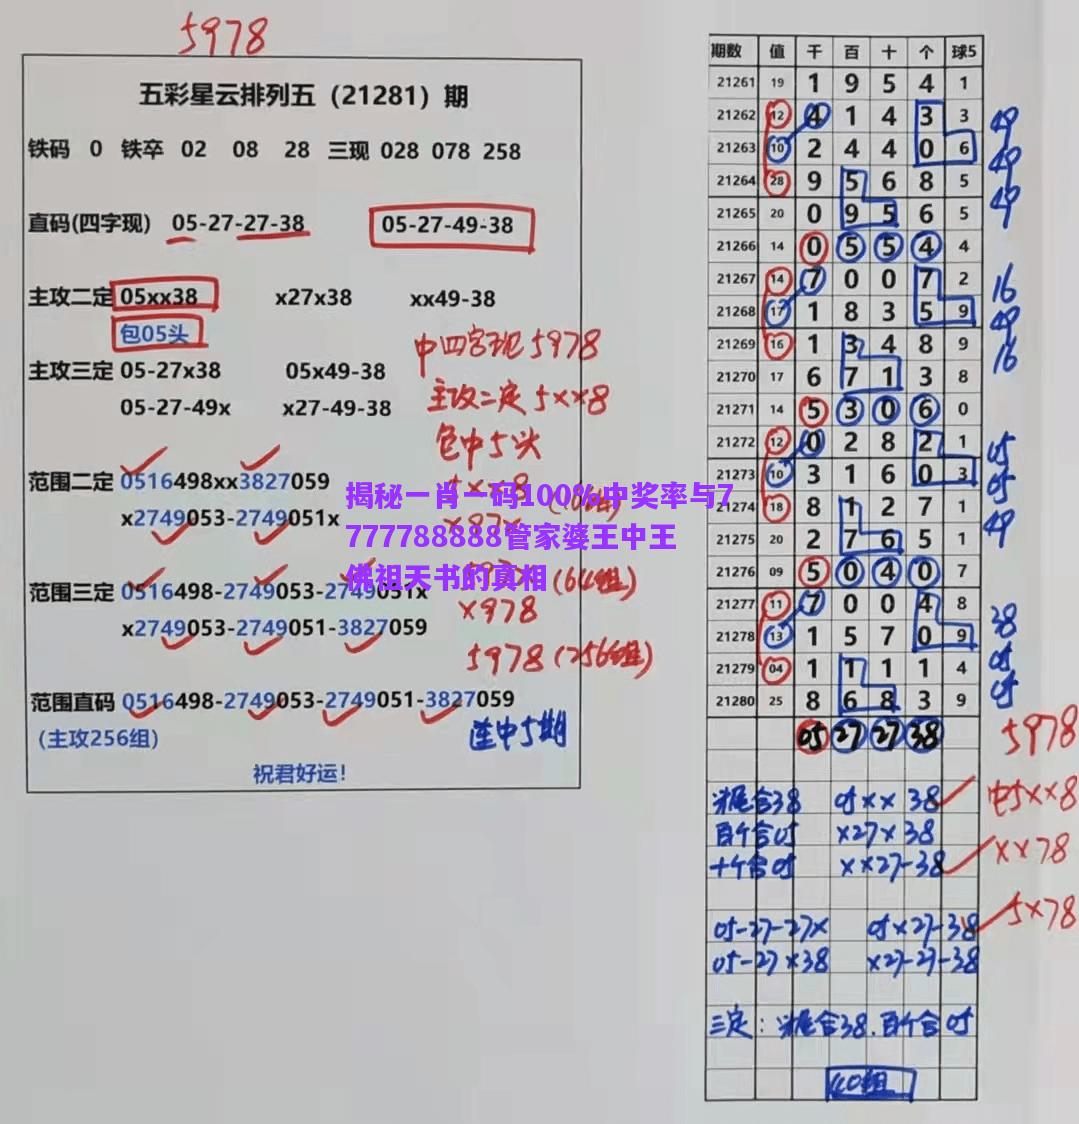 5978
五彩星云排列五（21281）期
铁码 0 铁卒 02 08 28 三现 028 078 258
直码(四字现) 05-27-27-38 05-27-49-38
主攻二定 05xx38 x27x38 xx49-38
包05头
主攻三定 05-27x38 05x49-38
05-27-49x x27-49-38
范围二定 0516498xx3827059
x2749053-2749051x
范围三定 0516498-2749053-2749051x
x2749053-2749051-3827059
范围直码 0516498-2749053-2749051-3827059
(主攻256组)
祝君好运！
中四字现5978
主攻二定5xx8
包中5头
x978
(64组)
5978(256组)
连中5期
揭秘一肖一码100%中奖率与7
777788888管家婆王中王
佛祖天书的真相
期数 值 千 百 十 个 球5
21261 19 1 9 5 4 1
21262 12 4 1 4 3 3
21263 10 2 4 4 0 6
21264 28 9 5 6 8 5
21265 20 0 9 5 6 5
21266 14 0 5 5 4 4
21267 14 7 0 0 7 2
21268 17 1 8 3 5 9
21269 16 1 3 4 8 9
21270 17 6 7 1 3 8
21271 14 5 3 0 6 0
21272 12 0 2 8 2 1
21273 10 3 1 6 0 3
21274 18 8 1 2 7 1
21275 20 2 7 6 5 1
21276 09 5 0 4 0 7
21277 11 7 0 0 4 8
21278 13 1 5 7 0 9
21279 04 1 1 1 1 4
21280 25 8 6 8 3 9
05 27 27 38
49
49
49
16
49
16
05
05
49
38
05
05
5978
合38 05xx38 中5xx8
百个合05 x27x38
十个合05 xx27-38 xx78
05-27-27x 05x27-38 5x78
05-27x38 x27-27-38
三定：合38.百个合05
40组